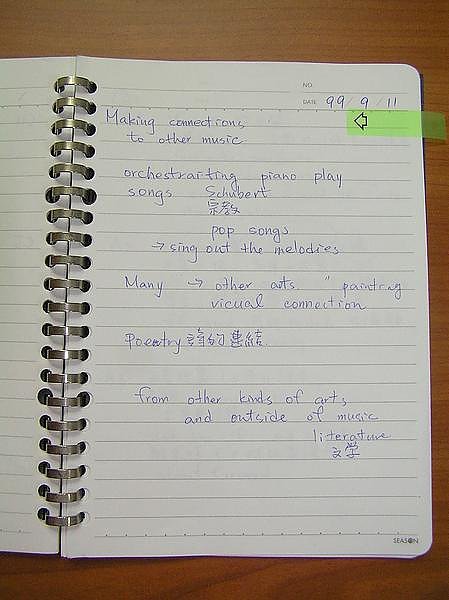 NO.
DATE 99 / 9 / 11
Making connections
to other music
orchestraiting piano play
songs Schubert
宗教
pop songs
→ sing out the melodies
Many → other arts " painting
vicual connection
Poeatry 詩的連結.
from other kinds of arts
and outside of music
literature
文学
SEASON